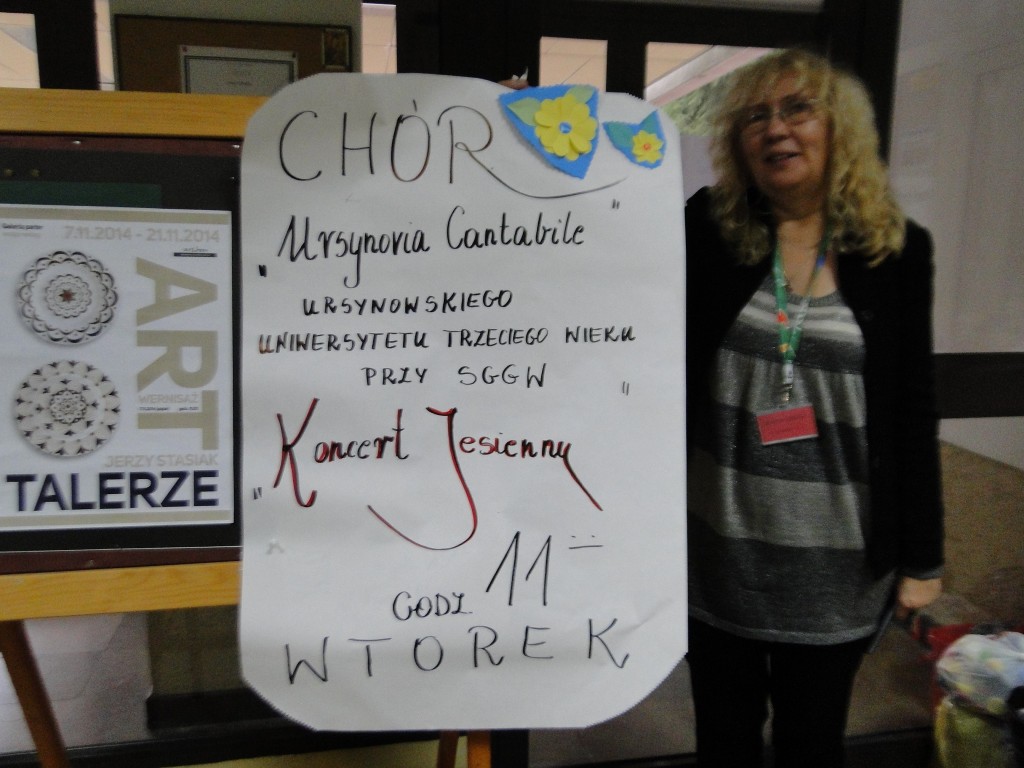 CHÓR
„Ursynovia Cantabile"
URSYNOWSKIEGO
UNIWERSYTETU TRZECIEGO WIEKU
PRZY SGGW "
„Koncert Jesienny
GODZ. 11
WTOREK
7.11.2014 - 21.11.2014
ART
WERNISAŻ
JERZY STASIAK
TALERZE